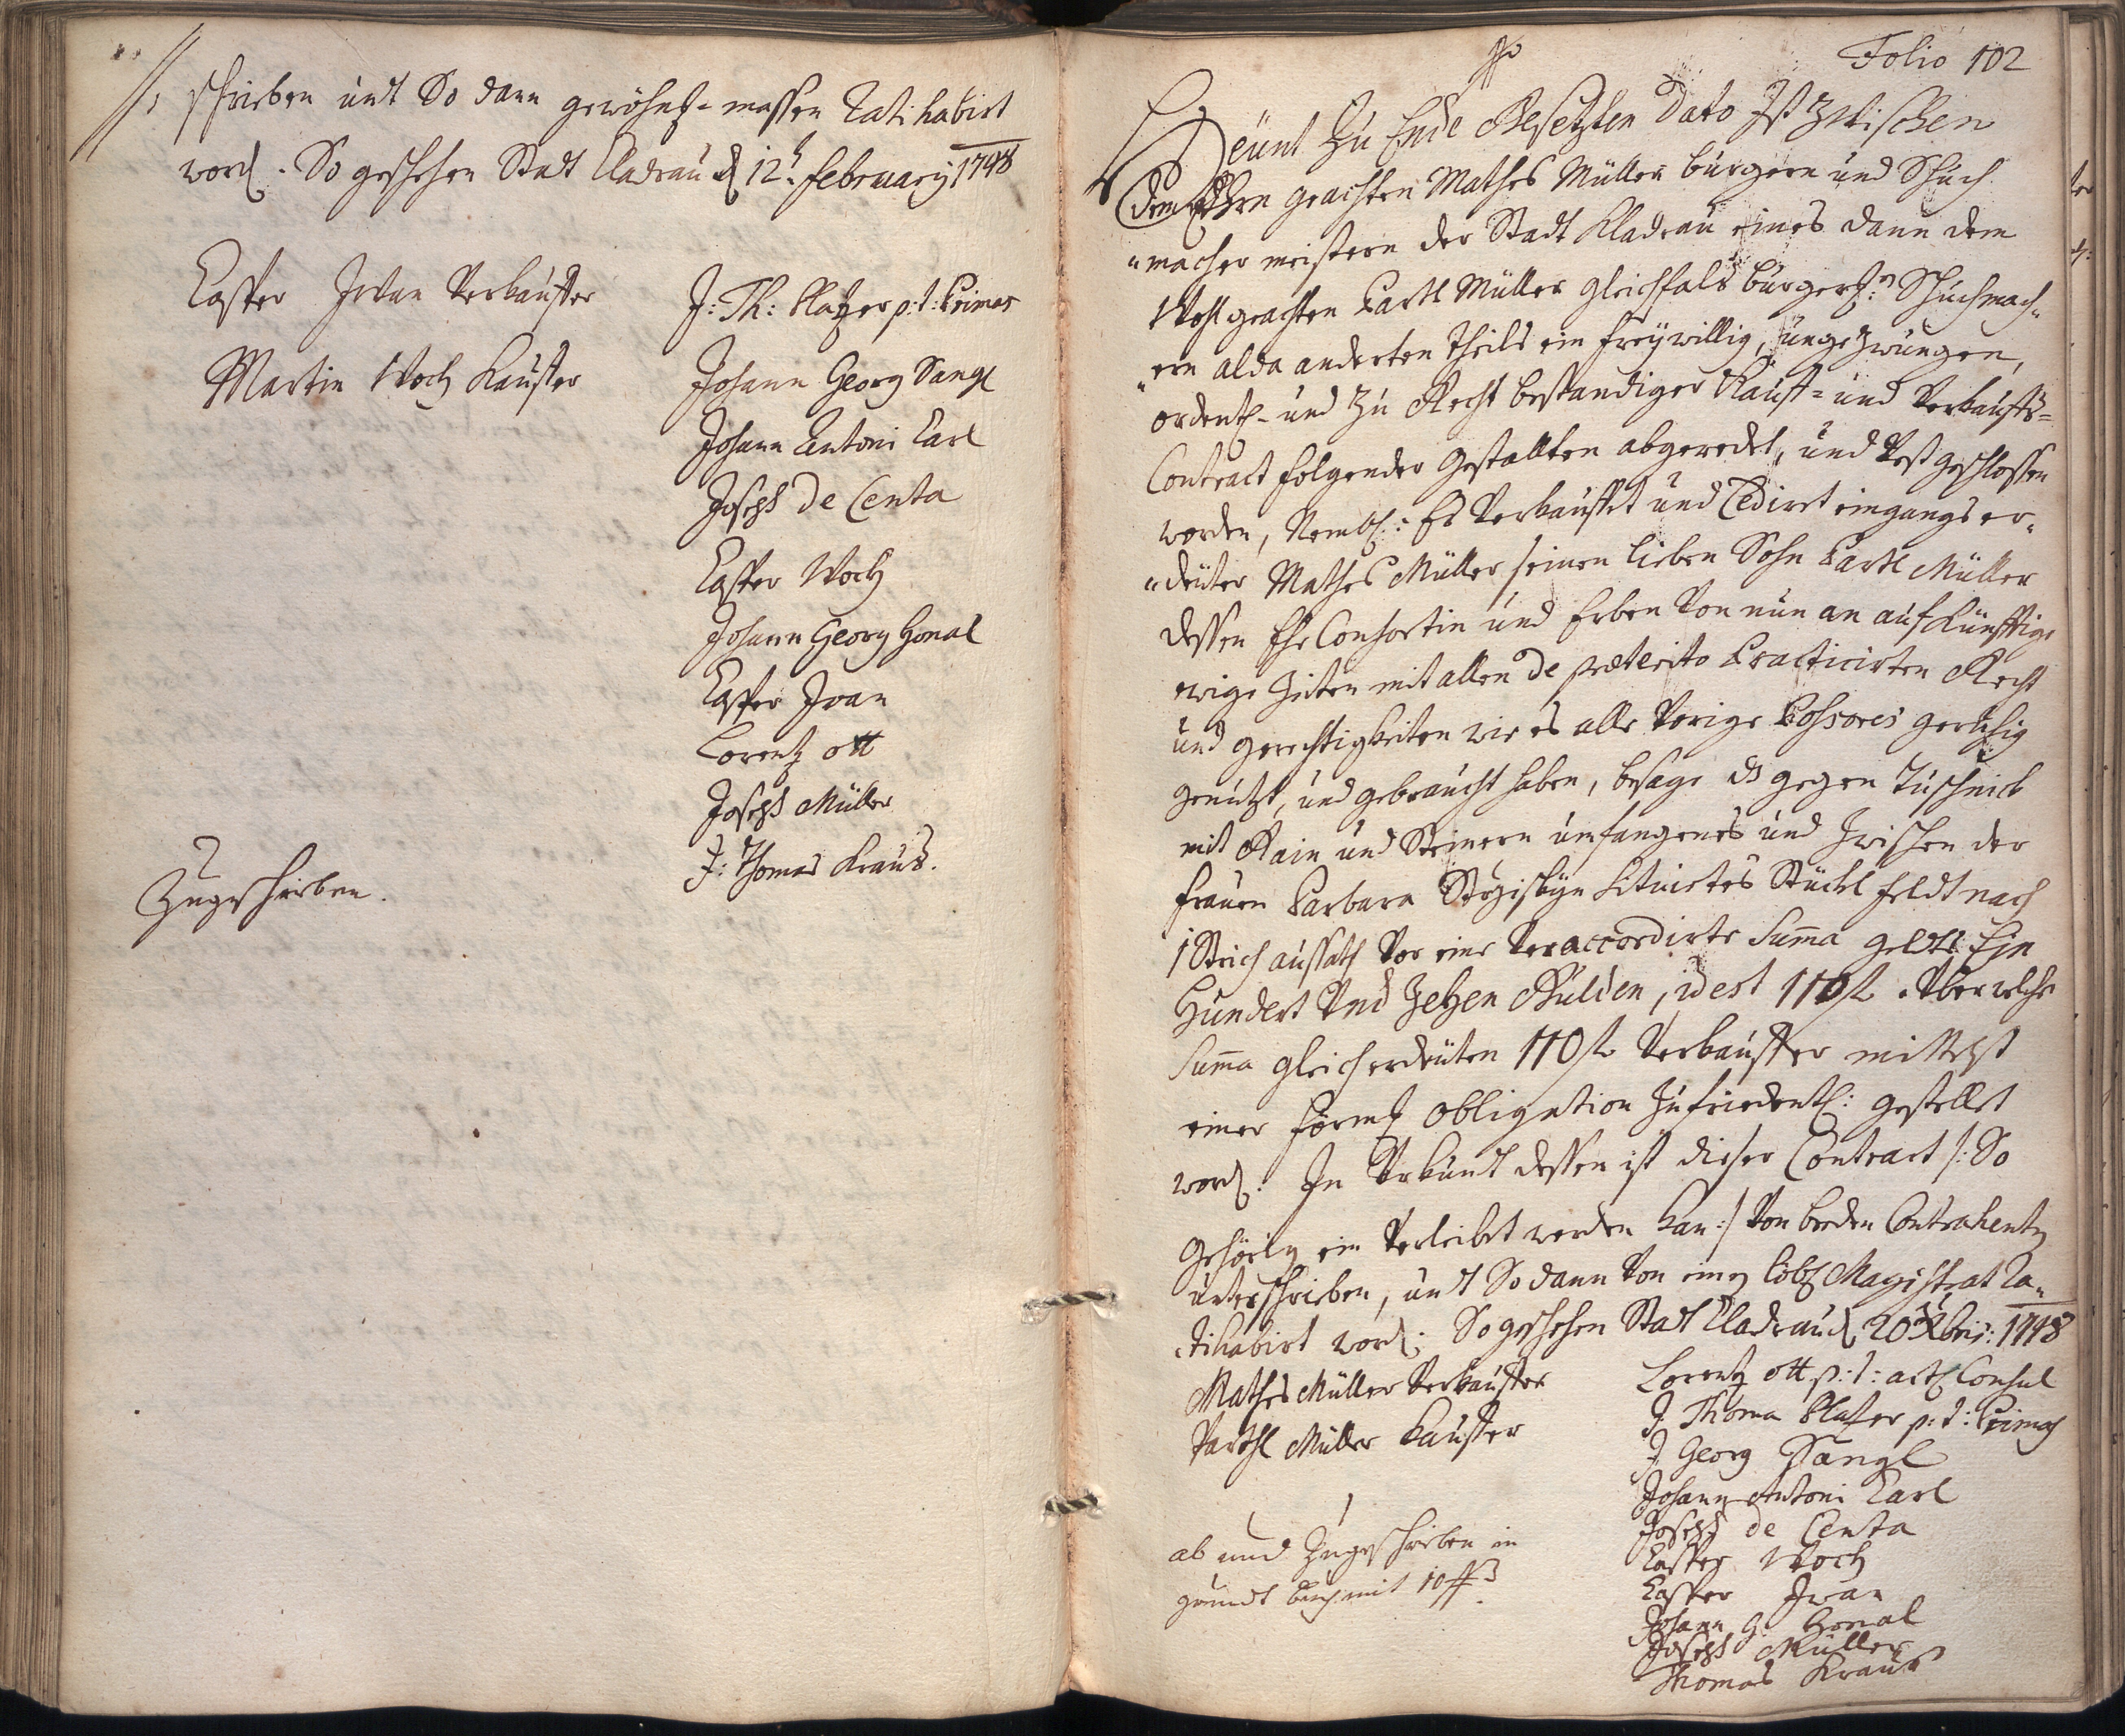 schrieben undt So dann gewöhnl- massen Ratihabirt
word. So geschehen Stadt Cladrau d 12t february 1748
Casper Irvan Verkauffer
Martin Woch Kauffer
J: Th: Platzer p: t: Primas
Johann Georg Sangl
Johann Antoni Carl
Joseph de Centa
Casper Woch
Johann Georg Honal
Casper Ivan
Lorentz ott
Joseph Müller
J: Thomas Kraus.
Zugeschrieben.
Folio 102
Heünt Zu Ende Gesetzten Dato Ist Zwischen
dem Ehrn geachten Mathes Müller burgern und Schuch
"macher meistern der Stadt Kladrau eines dann dem
Wohl geachten Bartl Müller gleichfals burgerl: Schuchmach"
"ern alda anderten theils ein freywillig, ungezwungen,
ordentl- und zu Recht bestandiger Kauff= und Verkauffs=
Contract folgender Gestallten abgeredet, und Vest geschlossen
worden, Nembl: Es Verkauffet und Cedirt eingangs er"
"deuter Mathes Müller seinen lieben Sohn Bartl Müller
dessen Ehe Consortin und Erben Von nun an auf Künfftige
ewige Zeiten mit allen de præterito Practicirten Recht
und gerechtigkeiten wie es alle Vorige Possores geruhig
genützt, und gebraucht haben, besage ds gegen Tuschnick
mit Rain und Steinern umfangenes und Zwischen der
frauen Barbara Situirtes Stückl feldt nach
1 Strich aussath Vor eine Veraccordirte Summa geldts Ein
Hundert Vnd Zehen Gulden, id est 110 fl. Vber welche
Summa gleich erdeuten 110 fl Verkauffer mittelst
einer förml obligation Zufriedentl: gestellet
word. In Vrkundt dessen ist dieser Contract /: So
Gehörig ein Verleibet werden kan :/ Von beeden Contrahentn
unterschrieben, undt Sodann Von einen löbl Magistrat Ra"
"tihabirt word: So geschehen Stadt Cladrau d 20t Xbris: 1748
Mathes Müller Verkauffer
Barthl Müller Kauffer
Lorentz ott p: t: Consul
J Thoma Platzer p: t: Primas
J Georg Sangl
Johann Antoni Carl
Joseph de Centa
Casper Woch
Casper Ivan
Johann G: Honal
Joseph Müller
Thomas Kraus
ab und Zugeschrieben in
grundt buch mit 10 ß